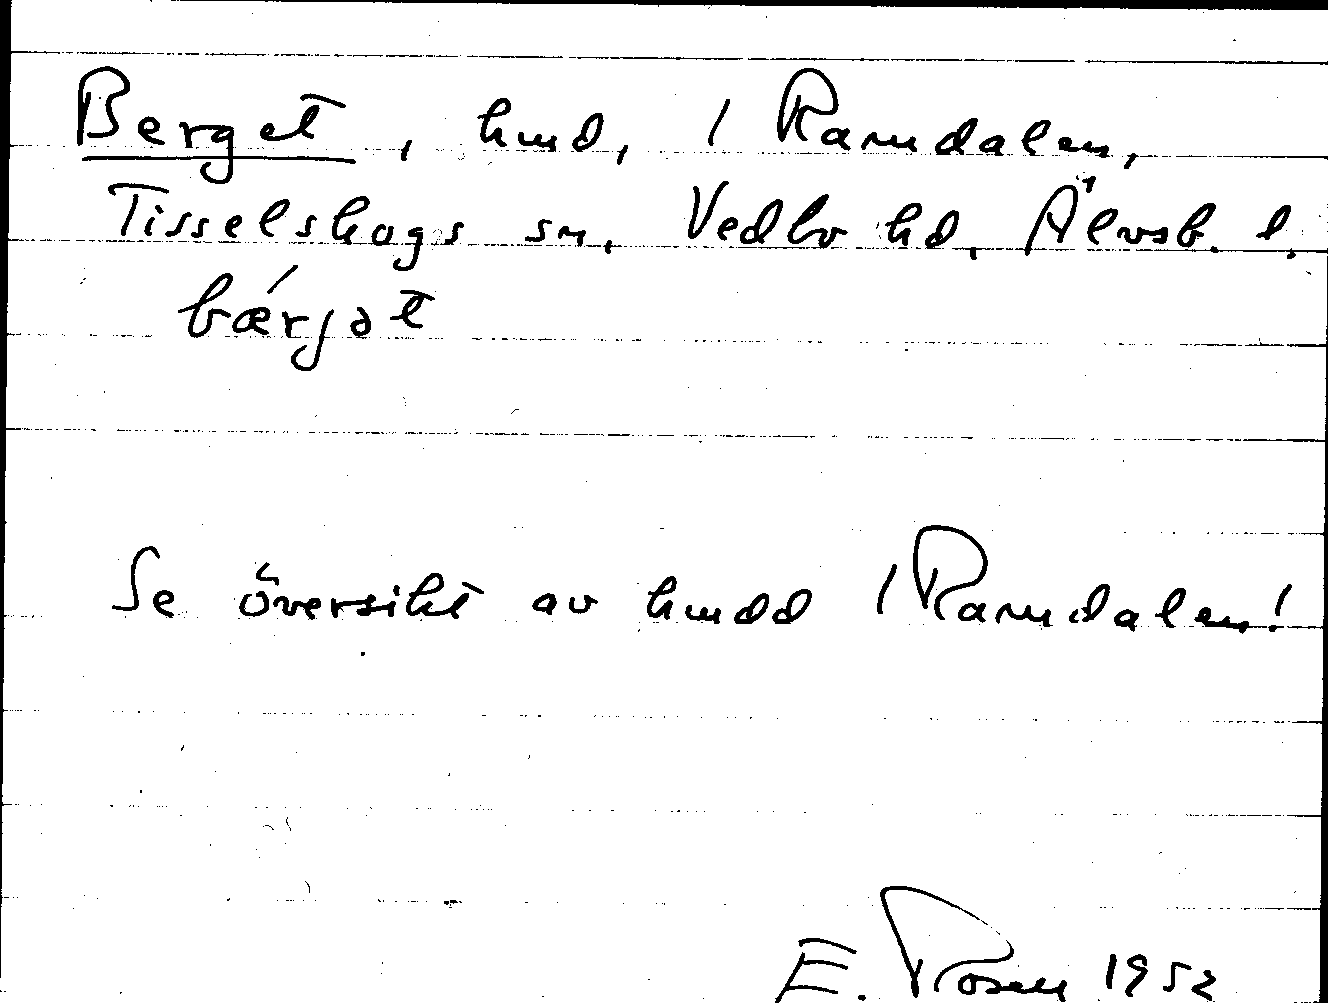 Berget, hmd, / Ramdalen,
Tisselskogs sn, Vedbo hd, Älvsb. l.
bǽrjət
Se översikt av hmdd / Ramdalen!
E. Rosen 1952